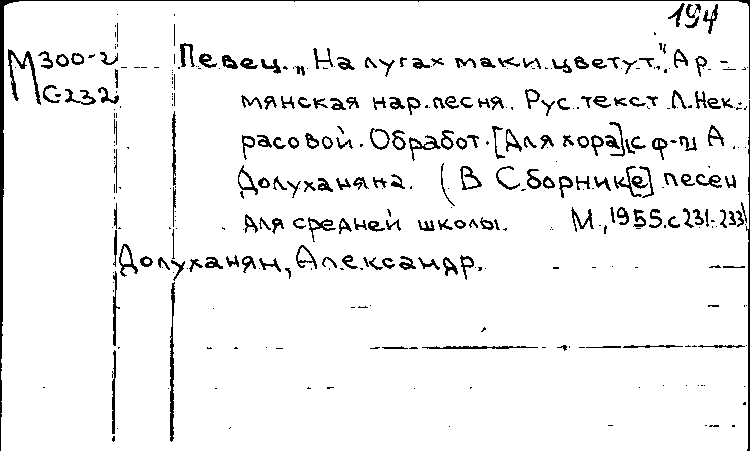 194
М300-2 Певец. „На лугах маки цветут." Ар-
С232 мянская нар. песня. Рус. текст Л. Нек-
расовой. Обработ. [Для хора] с ф-п А.
Долуханяна. (В Сборник[е] песен
для средней школы. М., 1955. с 231-233)
Долуханян, Александр.